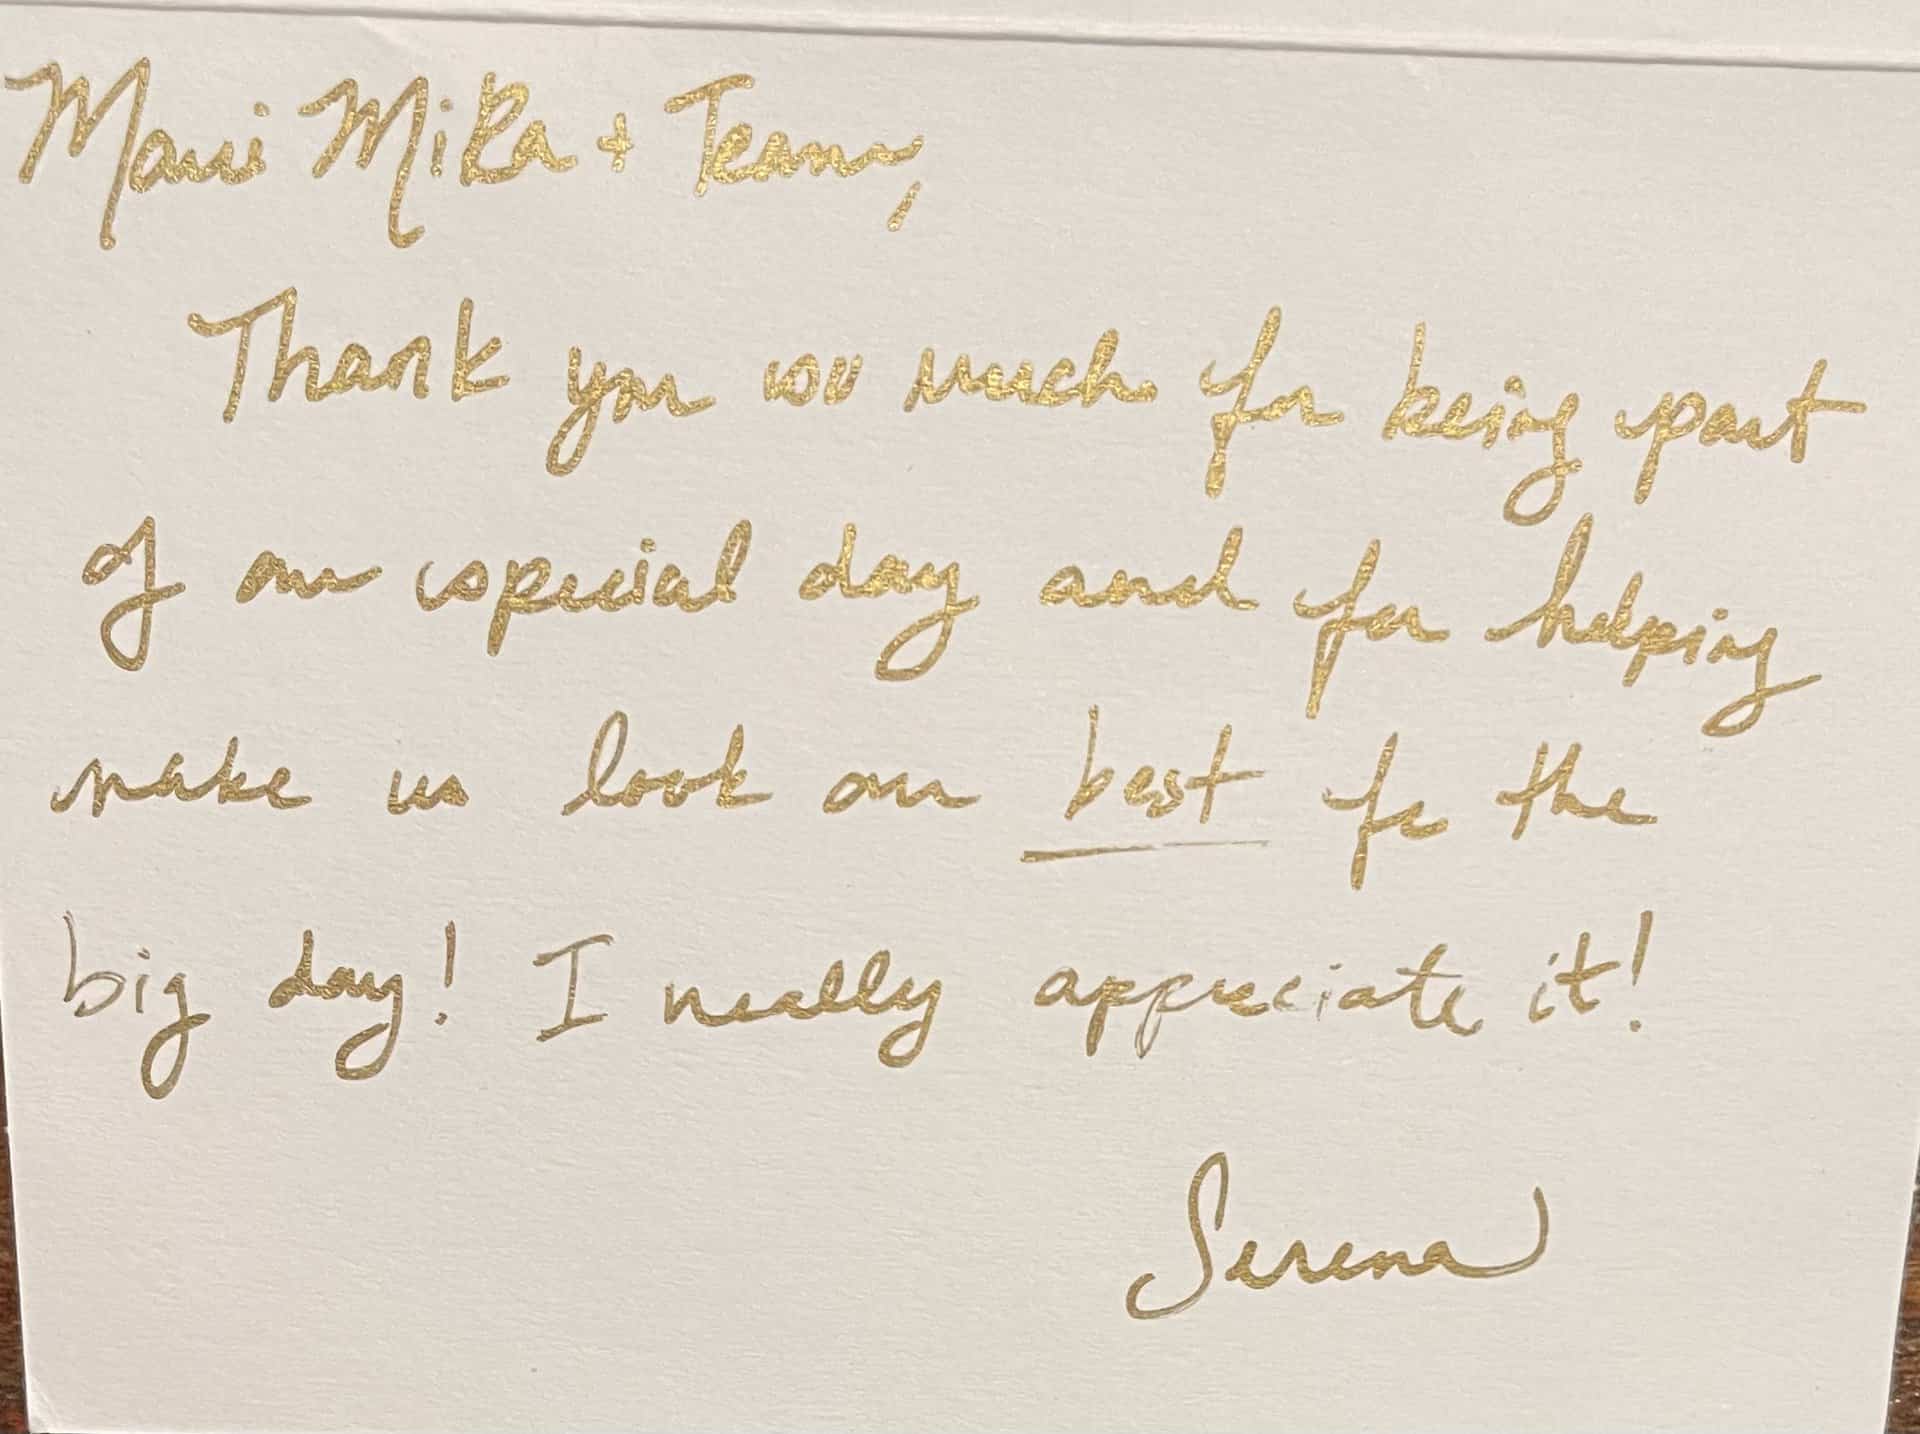 Maui Mika + Team,
Thank you so much for being part
of our special day and for helping
make us look our best for the
big day! I really appreciate it!
Serena